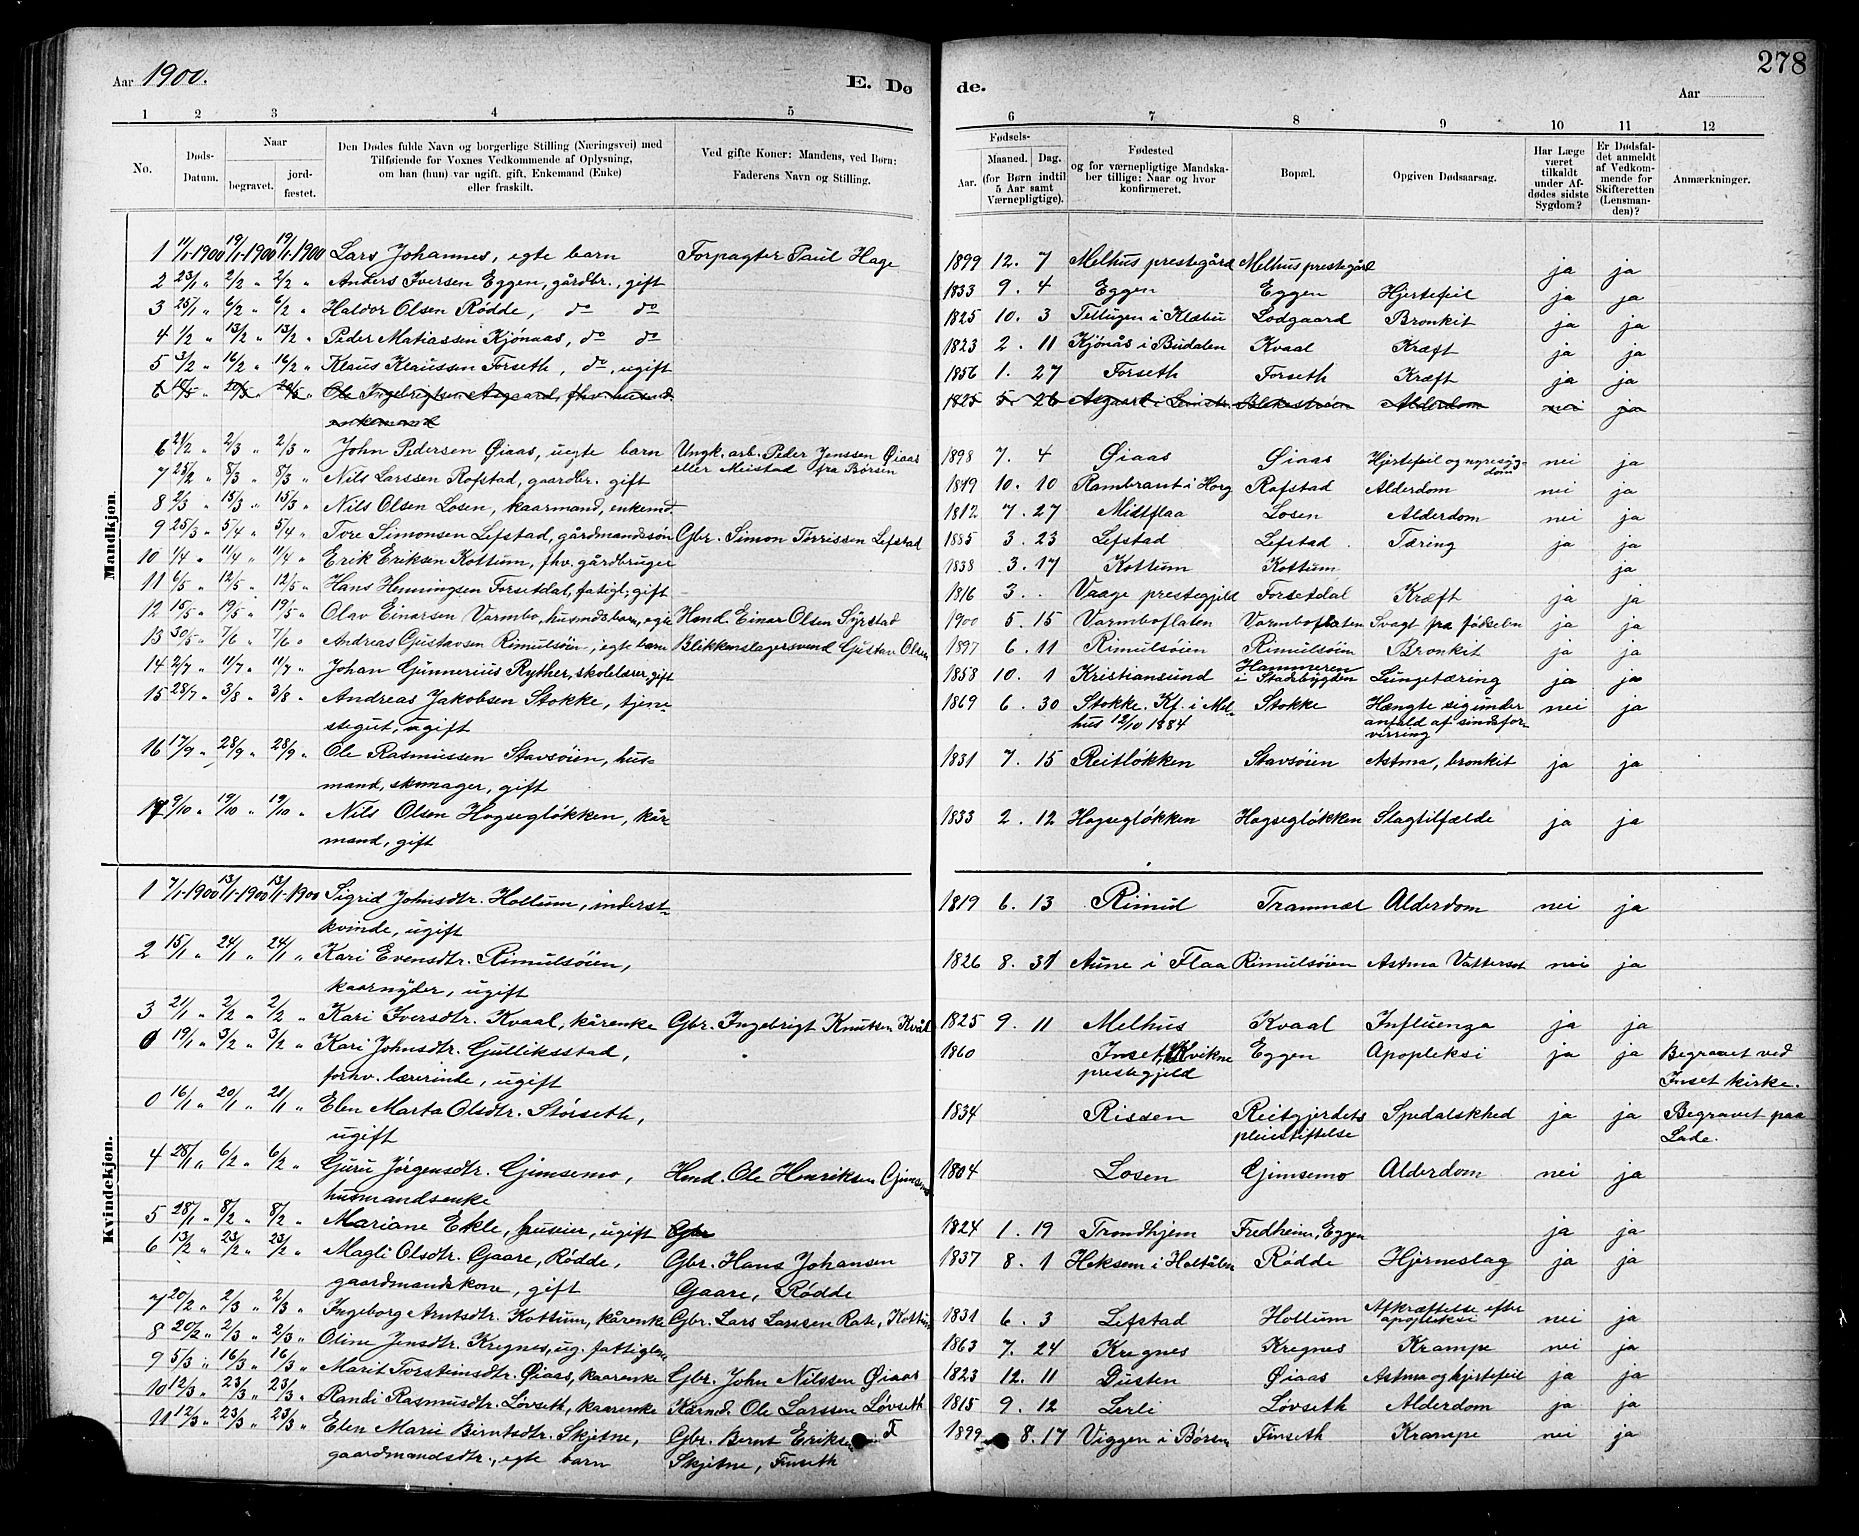 Aar 1900.
E. Dø
de.
Aar
278
1 2 3 4 5
6 7 8 9 10 11 12
No.
Døds-Datum.
Naar
begravet.
jord-fæstet.
Den Dødes fulde Navn og borgerlige Stilling (Næringsvei) med
Tilføiende for Voxnes Vedkommende af Oplysning,
om han (hun) var ugift, gift, Enkemand (Enke)
eller fraskilt.
Ved gifte Koner: Mandens, ved Børn:
Faderens Navn og Stilling.
Fødsels-
Aar. Maaned. Dag.
(for Børn indtil
5 Aar samt
Værnepligtige).
Fødested
og for værnepligtige Mandska-
ber tillige: Naar og hvor
konfirmeret.
Bopæl.
Opgiven Dødsaarsag.
Har Læge
været
tilkaldt
under Af-
dødes sidste
Sygdom?
Er Dødsfal-
det anmeldt
af Vedkom-
mende for
Skifteretten
(Lensman-
den)?
Anmærkninger.
Mandkjøn.
1 11/1-1900 19/1-1900 19/1-1900 Lars Johannes, egte barn Forpagter Paul Hage 1899 12. 7 Melhus prestegård Melhus prestegård ja ja
2 23/1 " 2/2 " 2/2 " Anders Iversen Eggen, gårdbr., gift 1833 9. 4 Eggen Eggen Hjertefeil ja ja
3 25/1 " 6/2 " 6/2 " Haldor Olsen Rødde, do do 1825 10. 3 Tellugen i Klæbu Lodgaard Bronkit ja ja
4 1/2 " 13/2 " 13/2 " Peder Matiassen Kjønaas, do do 1823 2. 11 Kjønås i Budalen Kvaal Kræft ja ja
5 3/2 " 16/2 " 16/2 " Klaus Klaussen Forseth, do, ugift 1856 1. 27 Forseth Forseth Kræft ja ja
6 Ole Ingebrigtsen Asgaard, fhv. husmd. 1825 5. 26 Alderdom nei ja
enkemand
6 21/2 " 2/3 " 2/3 " John Pedersen Øiaas, uegte barn Ungk. arb. Peder Jenssen Øiaas 1898 7. 4 Øiaas Øiaas Hjertefeil og nyresyg- nei ja
eller Meistad fra Børsen dom
7 25/2 " 8/3 " 8/3 " Nils Larssen Rofstad, gaardbr. gift 1819 10. 10 Rambraut i Horg Rofstad Alderdom nei ja
8 2/3 " 15/3 " 15/3 " Nils Olsen Losen, kaarmand, enkemd. 1812 7. 27 Midtflaa Losen Alderdom nei ja
9 25/3 " 5/4 " 5/4 " Tore Simonsen Lefstad, gårdmandssøn Gbr. Simon Torrissen Lefstad 1885 3. 23 Lefstad Lefstad Tæring ja ja
10 1/4 " 11/4 " 11/4 " Erik Eriksen Kottum, fhv. gårdbruger 1838 3. 17 Kottum Kottum ja
11 6/5 " 12/5 " 12/5 " Hans Henningsen Forsetdal, fatigl., gift 1816 3. Vaage prestegjeld Forsetdal Kræft ja ja
12 15/5 " 19/5 " 19/5 " Olav Einarsen Varmbo, husmdsbarn, egte Hmd. Einar Olsen Syrstad 1900 5. 15 Varmboflaten Varmboflaten Svagt fra fødselen ja ja
13 30/5 " 7/6 " 7/6 " Andreas Gustavsen Rimulsøien, egte barn Blikkenslagersvend Gustav Olsen 1897 6. 11 Rimulsøien Rimulsøien Bronkit ja ja
14 2/7 " 11/7 " 11/7 " Johan Gunnerius Ryther, skolelærer, gift 1858 10. 1 Kristiansund Hammeren i Stadsbygden Lungetæring ja ja
15 28/7 " 3/8 " 3/8 " Andreas Jakobsen Stokke, tjene- 1869 6. 30 Stokke. Kf. i Mel- Stokke Hængte sig under nei ja
stegut, ugift hus 12/10 1884 anfald af sindsfor-
virring
16 17/9 " 28/9 " 28/9 " Ole Rasmussen Stavsøien, hus- 1831 7. 15 Reitløkken Stavsøien Astma, bronkit ja ja
mand, skomager, gift
17 9/10 " 19/10 " 19/10 " Nils Olsen Hagsegløkken, kår- 1833 2. 12 Hagsegløkken Hagsegløkken Slagtilfælde ja ja
mand, gift
Kvindekjøn.
1 7/1-1900 13/1-1900 13/1-1900 Sigrid Johnsdtr. Hollum, inderst- 1819 6. 13 Rimul Tramnæt Alderdom nei ja
kvinde, ugift
2 15/1 " 24/1 " 24/1 " Kari Evensdtr. Rimulsøien, 1826 8. 31 Aune i Flaa Rimulsøien Astma Vattersot nei ja
kaarnyder, ugift
3 21/1 " 2/2 " 2/2 " Kari Iversdtr. Kvaal, kårenke Gbr. Ingebrigt Knutsen Kvål 1825 9. 11 Melhus Kvaal Influenza ja ja
0 19/1 " 3/2 " 3/2 " Kari Johnsdtr. Gulliksstad, 1860 Inset, Kvikne Eggen Apopleksi ja ja Begravet ved
forhv. lærerinde, ugift prestegjeld Inset kirke.
0 16/1 " 20/1 " 21/1 " Elen Marta Olsdtr. Størseth, 1834 Rissen Reitgjerdets Spedalskhed ja ja Begravet paa
ugift pleiestiftelse Lade.
4 28/1 " 6/2 " 6/2 " Guru Jørgensdtr. Gjimsemo, Hmd. Ole Henriksen Gjimsemo 1804 Losen Gjimsemo Alderdom nei ja
husmandsenke
5 28/1 " 8/2 " 8/2 " Mariane Ekle, huseier, ugift Gbr 1824 1. 19 Trondhjem Fredheim, Eggen ja ja
6 13/2 " 23/2 " 23/2 " Magli Olsdtr. Gaare, Rødde, Gbr. Hans Johansen 1837 8. 1 Heksem i Holtålen Rødde Hjerneslag ja ja
gaardmandskone, gift Gaare, Rødde
7 20/2 " 2/3 " 2/3 " Ingeborg Arntsdtr. Kottum, kårenke Gbr. Lars Larssen Rate, Kottum 1831 6. 3 Lefstad Hollum Afkræftelse efter nei ja
apopleksi
8 20/2 " 2/3 " 2/3 " Oline Jensdtr. Kregnes, ug. fattiglem 1863 7. 24 Kregnes Kregnes Krampe nei ja
9 5/3 " 16/3 " 16/3 " Marit Torsteinsdtr. Øiaas, kaarenke Gbr. John Nilssen Øiaas 1823 12. 11 Dusten Øiaas Astma og hjertefeil ja ja
10 12/3 " 23/3 " 23/3 " Randi Rasmusdtr. Løvseth, kaarenke Kårmd. Ole Larssen Løvseth 1815 9. 12 Lerli Løvseth Alderdom ja ja
11 12/3 " 23/3 " 23/3 " Elen Marie Berntsdtr. Skjetne, Gbr. Bernt Eriksen 1899 8. 17 Viggen i Børsen Finseth Krampe nei ja
gaardmandsdtr., egte barn Skjetne, Finseth